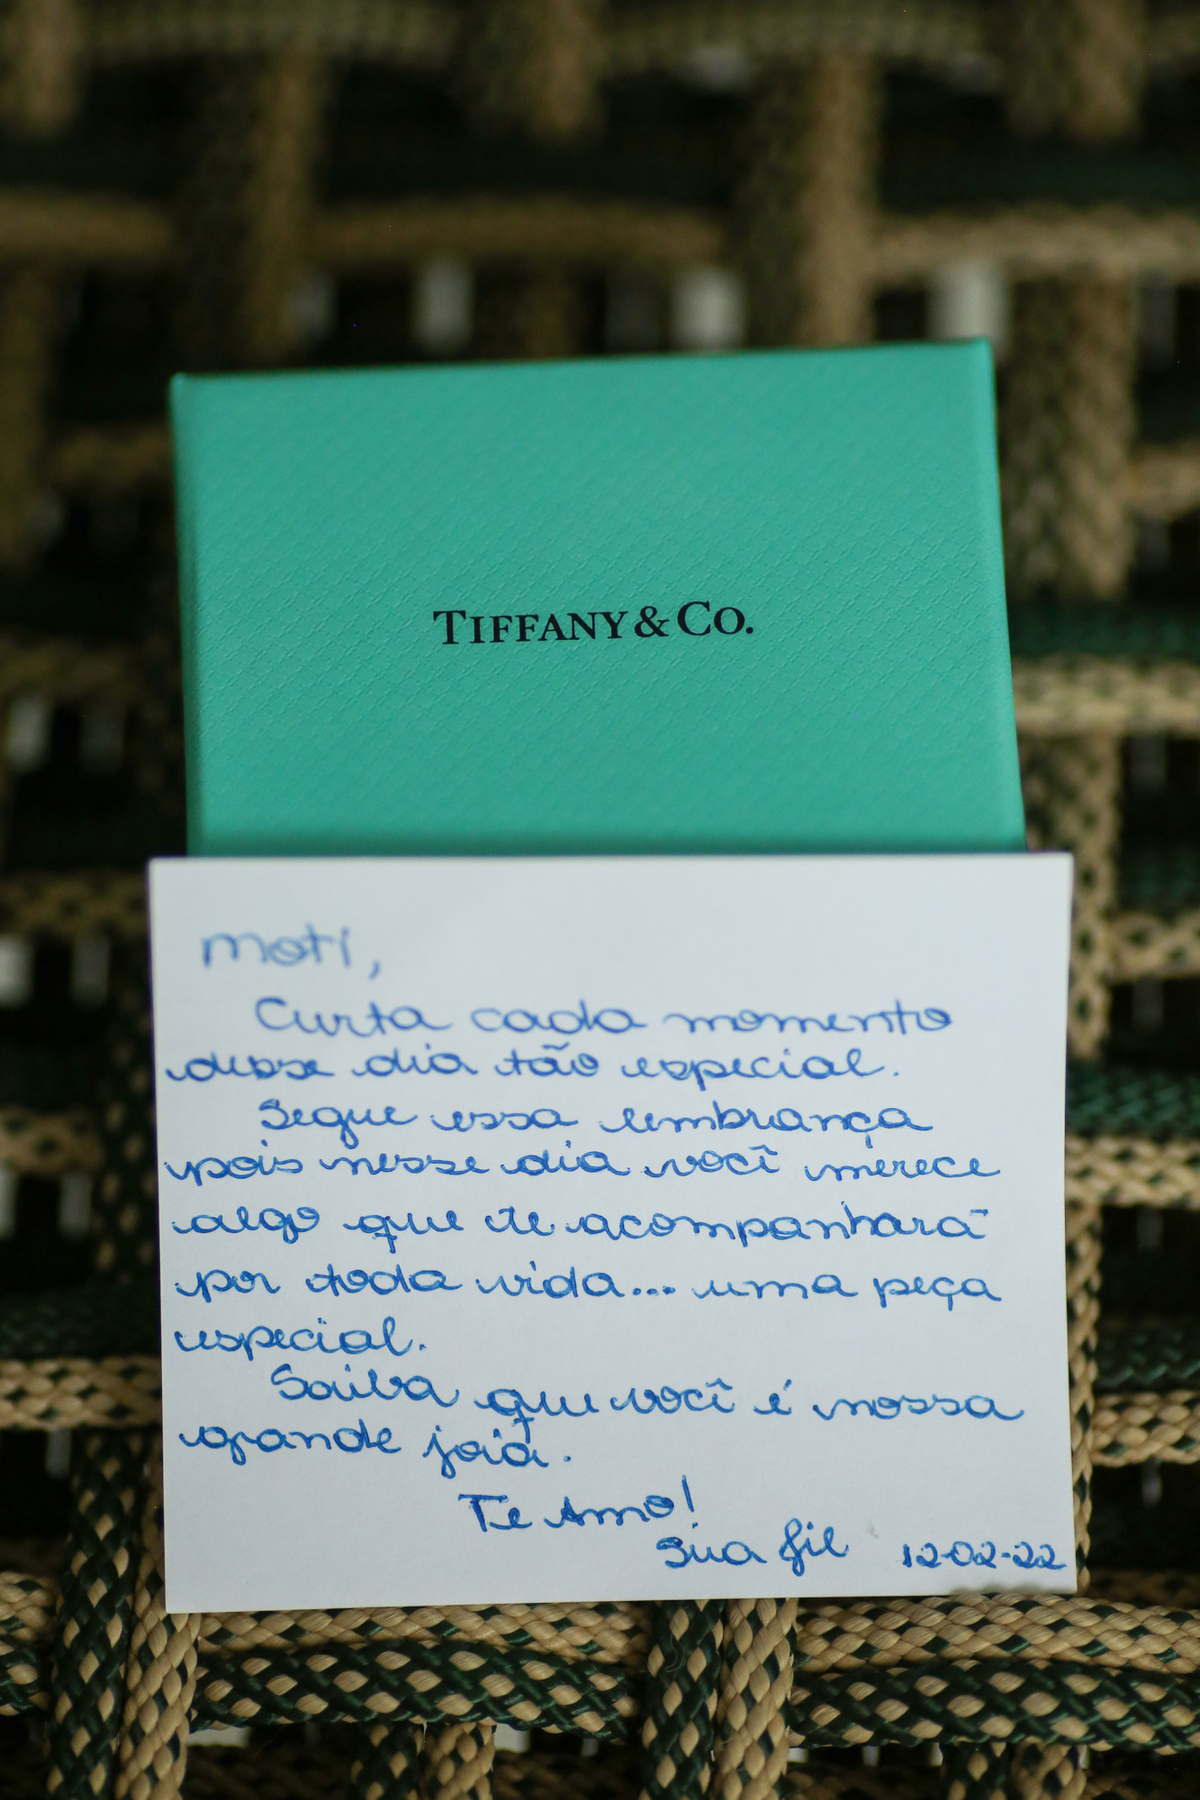 TIFFANY & CO.
Moti,
Curta cada momento
desse dia tão especial.
Segue essa lembrança
pois nesse dia você merece
algo que te acompanhará
por toda vida... uma peça
especial.
Saiba que você é nossa
grande joia.
Te Amo!
Sua Gil 12-02-22